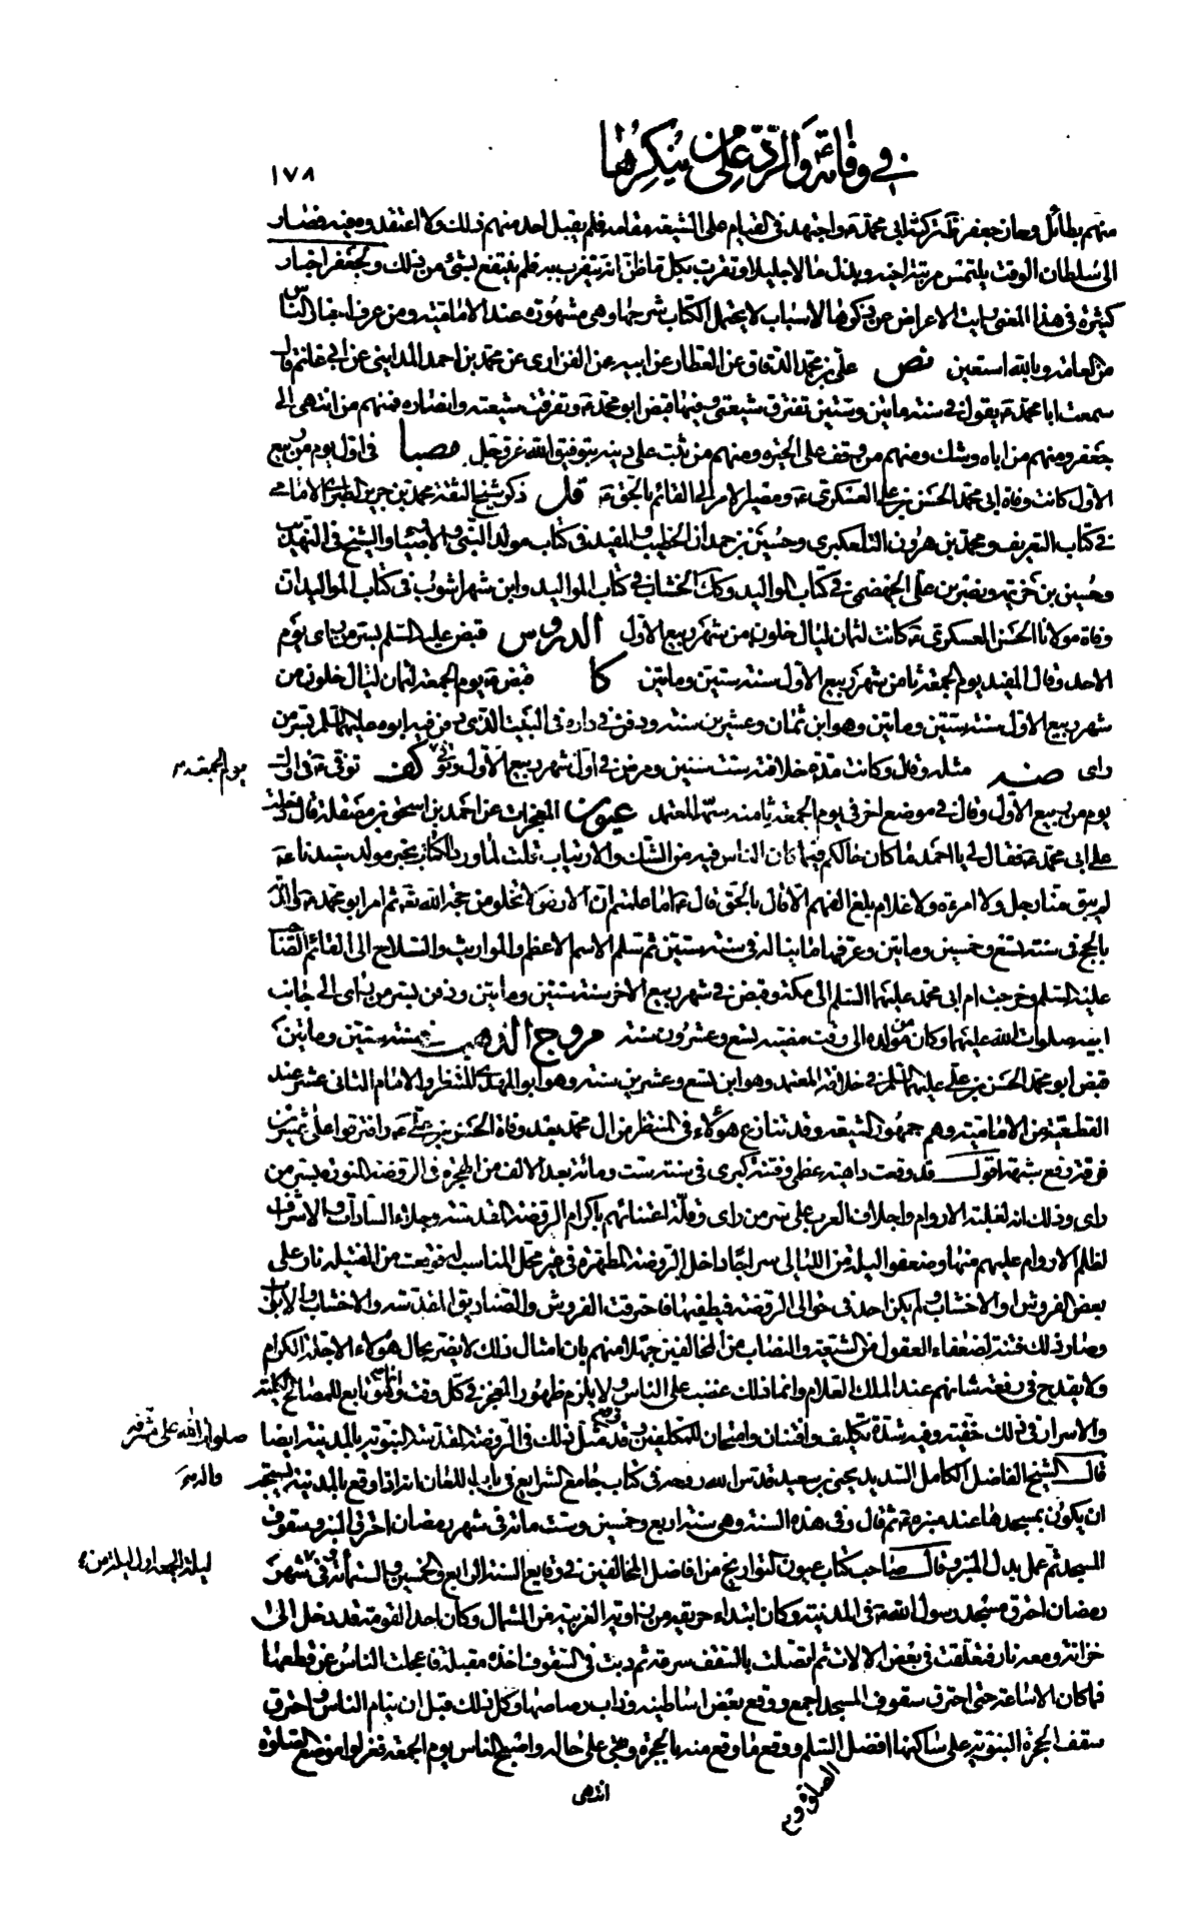 في وفاته والرد على من ينكرها
١٧٨
منهم بطائل وحاز جعفر ظ تركة ابي محمد ع واجتهد في القيام على الشيعة مقامه فلم يقبل احد منهم ذلك ولا اعتقدوه فيه فصار
الى سلطان الوقت يلتمس مرتبة اخيه وبذل مالا جليلا وتقرب بكل ما ظن انه يتقرب به فلم ينتفع بشئ من ذلك ولجعفر اخبار
كثيرة في هذا المعنى رايت الاعراض عن ذكرها لاسباب لا يحتمل الكتاب شرحها وهي مشهورة عند الامامية ومن عرف اخبار الناس
من العامة وبالله استعين نص علي بن محمد الدقاق عن العطار عن ابيه عن الفزاري عن محمد بن احمد المدايني عن ابي غانم قال
سمعت ابا محمد ع يقول في سنة ماتين وستين تفترق شيعتي وفيها قبض ابو محمد ع وتفرقت شيعته وانصاره فمنهم من انتهى الى
جعفر ومنهم من اتاه وشك ومنهم من وقف على الحيرة ومنهم من ثبت على دينه بتوفيق الله عز وجل مصبا في اول يوم من ربيع
الاول كانت وفاة ابي محمد الحسن بن علي العسكري ع ومصير الامر الى القائم بالحق ع قل ذكر شيخ الثقة محمد بن جرير الطبري الامامي
في كتاب التعريف ومحمد بن هرون التلعكبري وحسين بن حمدان الخطيب والمفيد في كتاب مولد النبي والاوصيا والشيخ في التهذيب
وحسين بن خزيه ونصر بن علي الجهضمي في كتاب المواليد وكذا الخشاب في كتاب المواليد وابن شهراشوب في كتاب المواليد ان
وفاة مولانا الحسن العسكري ع كانت لثمان ليال خلون من شهر ربيع الاول الدروس قبض عليه السلم بسر من راى يوم
الاحد وقال المفيد يوم الجمعة ثامن شهر ربيع الاول سنة ستين وماتين كا قبض ع يوم الجمعة لثمان ليال خلون من
شهر ربيع الاول سنة ستين وماتين وهو ابن ثمان وعشرين سنة ودفن في داره في البيت الذي دفن فيه ابوه عليهما السلم بسر من
راى ضه مثله وقال وكانت مدة خلافته ست سنين ومرض في اول شهر ربيع الاول وتوفي كف توفي ع في اول
يوم الجمعة
يوم من ربيع الاول وقال في موضع اخر في يوم الجمعة ثامنه سمه المعتمد عيون المعجزات عن احمد بن اسحق بن مصقلة قال دخلت
على ابي محمد ع فقال لي يا احمد ما كان حالكم فيما كان الناس فيه من الشك والارتياب قلت لما ورد الكتاب بخبر مولد سيدنا ع
لم يبق منا رجل ولا امرءة ولا غلام بلغ الفهم الا قال بالحق قال ع اما علمتم ان الارض لا تخلو من حجة الله تع ثم امر ابو محمد ع والدته
بالحج في سنة تسع وخمسين وماتين وعرفها ما يناله في سنة ستين ثم سلم الاسم الاعظم والمواريث والسلاح الى القائم الصاحب
عليه السلم وخرجت ام ابي محمد عليهما السلم الى مكة وقبض في شهر ربيع الاخر سنة ستين وماتين ودفن بسر من راى الى جانب
ابيه صلوات الله عليهما وكان من مولده الى وقت مضيه تسع وعشرون سنة مروج الذهب في سنة ستين وماتين
قبض ابو محمد الحسن بن علي عليهم السلم في خلافة المعتمد وهو ابن تسع وعشرين سنة وهو ابو المهدي المنتظر والامام الثاني عشر عند
القطعية من الامامية وهم جمهور الشيعة وقد تنازع هؤلاء في المنتظر من ال محمد بعد وفاة الحسن بن علي ع وافترقوا على عشرين
فرقة رفع شبهة اقول قد وقعت داهية عظمى وفتنة كبرى في سنة ست ومائة بعد الالف من الهجرة في الروضة المنورة بسر من
راى وذلك انه لغلبة الاروام واجلاف العرب على سر من راى وقلة اعتنائهم باكرام الروضة المقدسة وجلاء السادات والاشراف
لظلم الاروام عليهم منها وضعوا ليلة من الليالي سراجا داخل الروضة المطهرة في غير محل المناسب له فوقعت من الفتيلة نار على
بعض الفروش او الاخشاب ولم يكن احد في حوالي الروضة فيطفيها فاحترقت الفروش والصناديق المقدسة والاخشاب والابواب
وصار ذلك فتنة لضعفاء العقول من الشيعة والنصاب من المخالفين جهلا منهم بان امثال ذلك لا يضر بحال هؤلاء الاجلة الكرام
ولا يقدح في رفعة شانهم عند الملك العلام وانما ذلك غضب على الناس ولا يلزم ظهور المعجز في كل وقت وانما هو تابع للمصالح الكلية
والاسرار في ذلك خفية وفيه شدة تكليف وافتتان وامتحان للمكلفين وقد وقع مثل ذلك في الروضة المقدسة النبوية بالمدينة ايضا
صلوات الله على مشرفه
قال الشيخ الفاضل الكامل السديد يحيى بن سعيد قدس الله روحه في كتاب جامع الشرايع في باب اللعان انه اذا وقع بالمدينة يستحب
واله
ان يكون بمسجدها عند منبره ع ثم قال وفي هذه السنة وهي سنة اربع وخمسين وست مائة في شهر رمضان احترق المنبر وسقوف
المسجد ثم عمل بدل المنبر وقال صاحب كتاب عيون التواريخ من افاضل المخالفين في وقايع السنة الرابع والخمسين والستمائة في شهر
ليلة الجمعة اول ليلة من
رمضان احترق مسجد رسول الله ع في المدينة وكان ابتداء حريقه من زاويته الغربية من الشمال وكان احد القومة قد دخل الى
خزانة ومعه نار فتعلقت في بعض الالات ثم اتصلت بالسقف سرعة ثم دبت في السقوف اخذة مقبلة فاعجلت الناس عن قطعها
فما كان الا ساعة حتى احترق سقوف المسجد اجمع ووقع بعض اساطينه وذاب رصاصها وكل ذلك قبل ان ينام الناس واحترق
سقف الحجرة النبوية على ساكنها افضل السلم ووقع ما وقع منه بالحجرة وبقي على حاله واصبح الناس يوم الجمعة فعزلوا موضع الصلوة
الصلوة و
انتهى